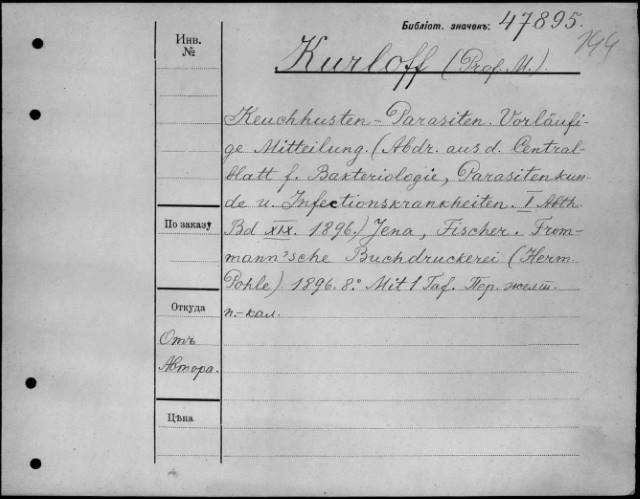 Библіот. значекъ: 47895.
199
Инв. №
Kurloff (Prof. M.).
Keuchhusten-Parasiten. Vorläufi-
ge Mitteilung. (Abdr. aus d. Central-
blatt f. Bakteriologie, Parasitenkun-
de u. Infectionskrankheiten. I Abth.
По заказу
Bd XIX. 1896.) Jena, Fischer. From-
mann'sche Buchdruckerei (Herm.
Pohle) 1896. 8.° Mit 1 Taf. Пер. желт.
Откуда
п.-кал.
Отъ
Автора.
Цѣна